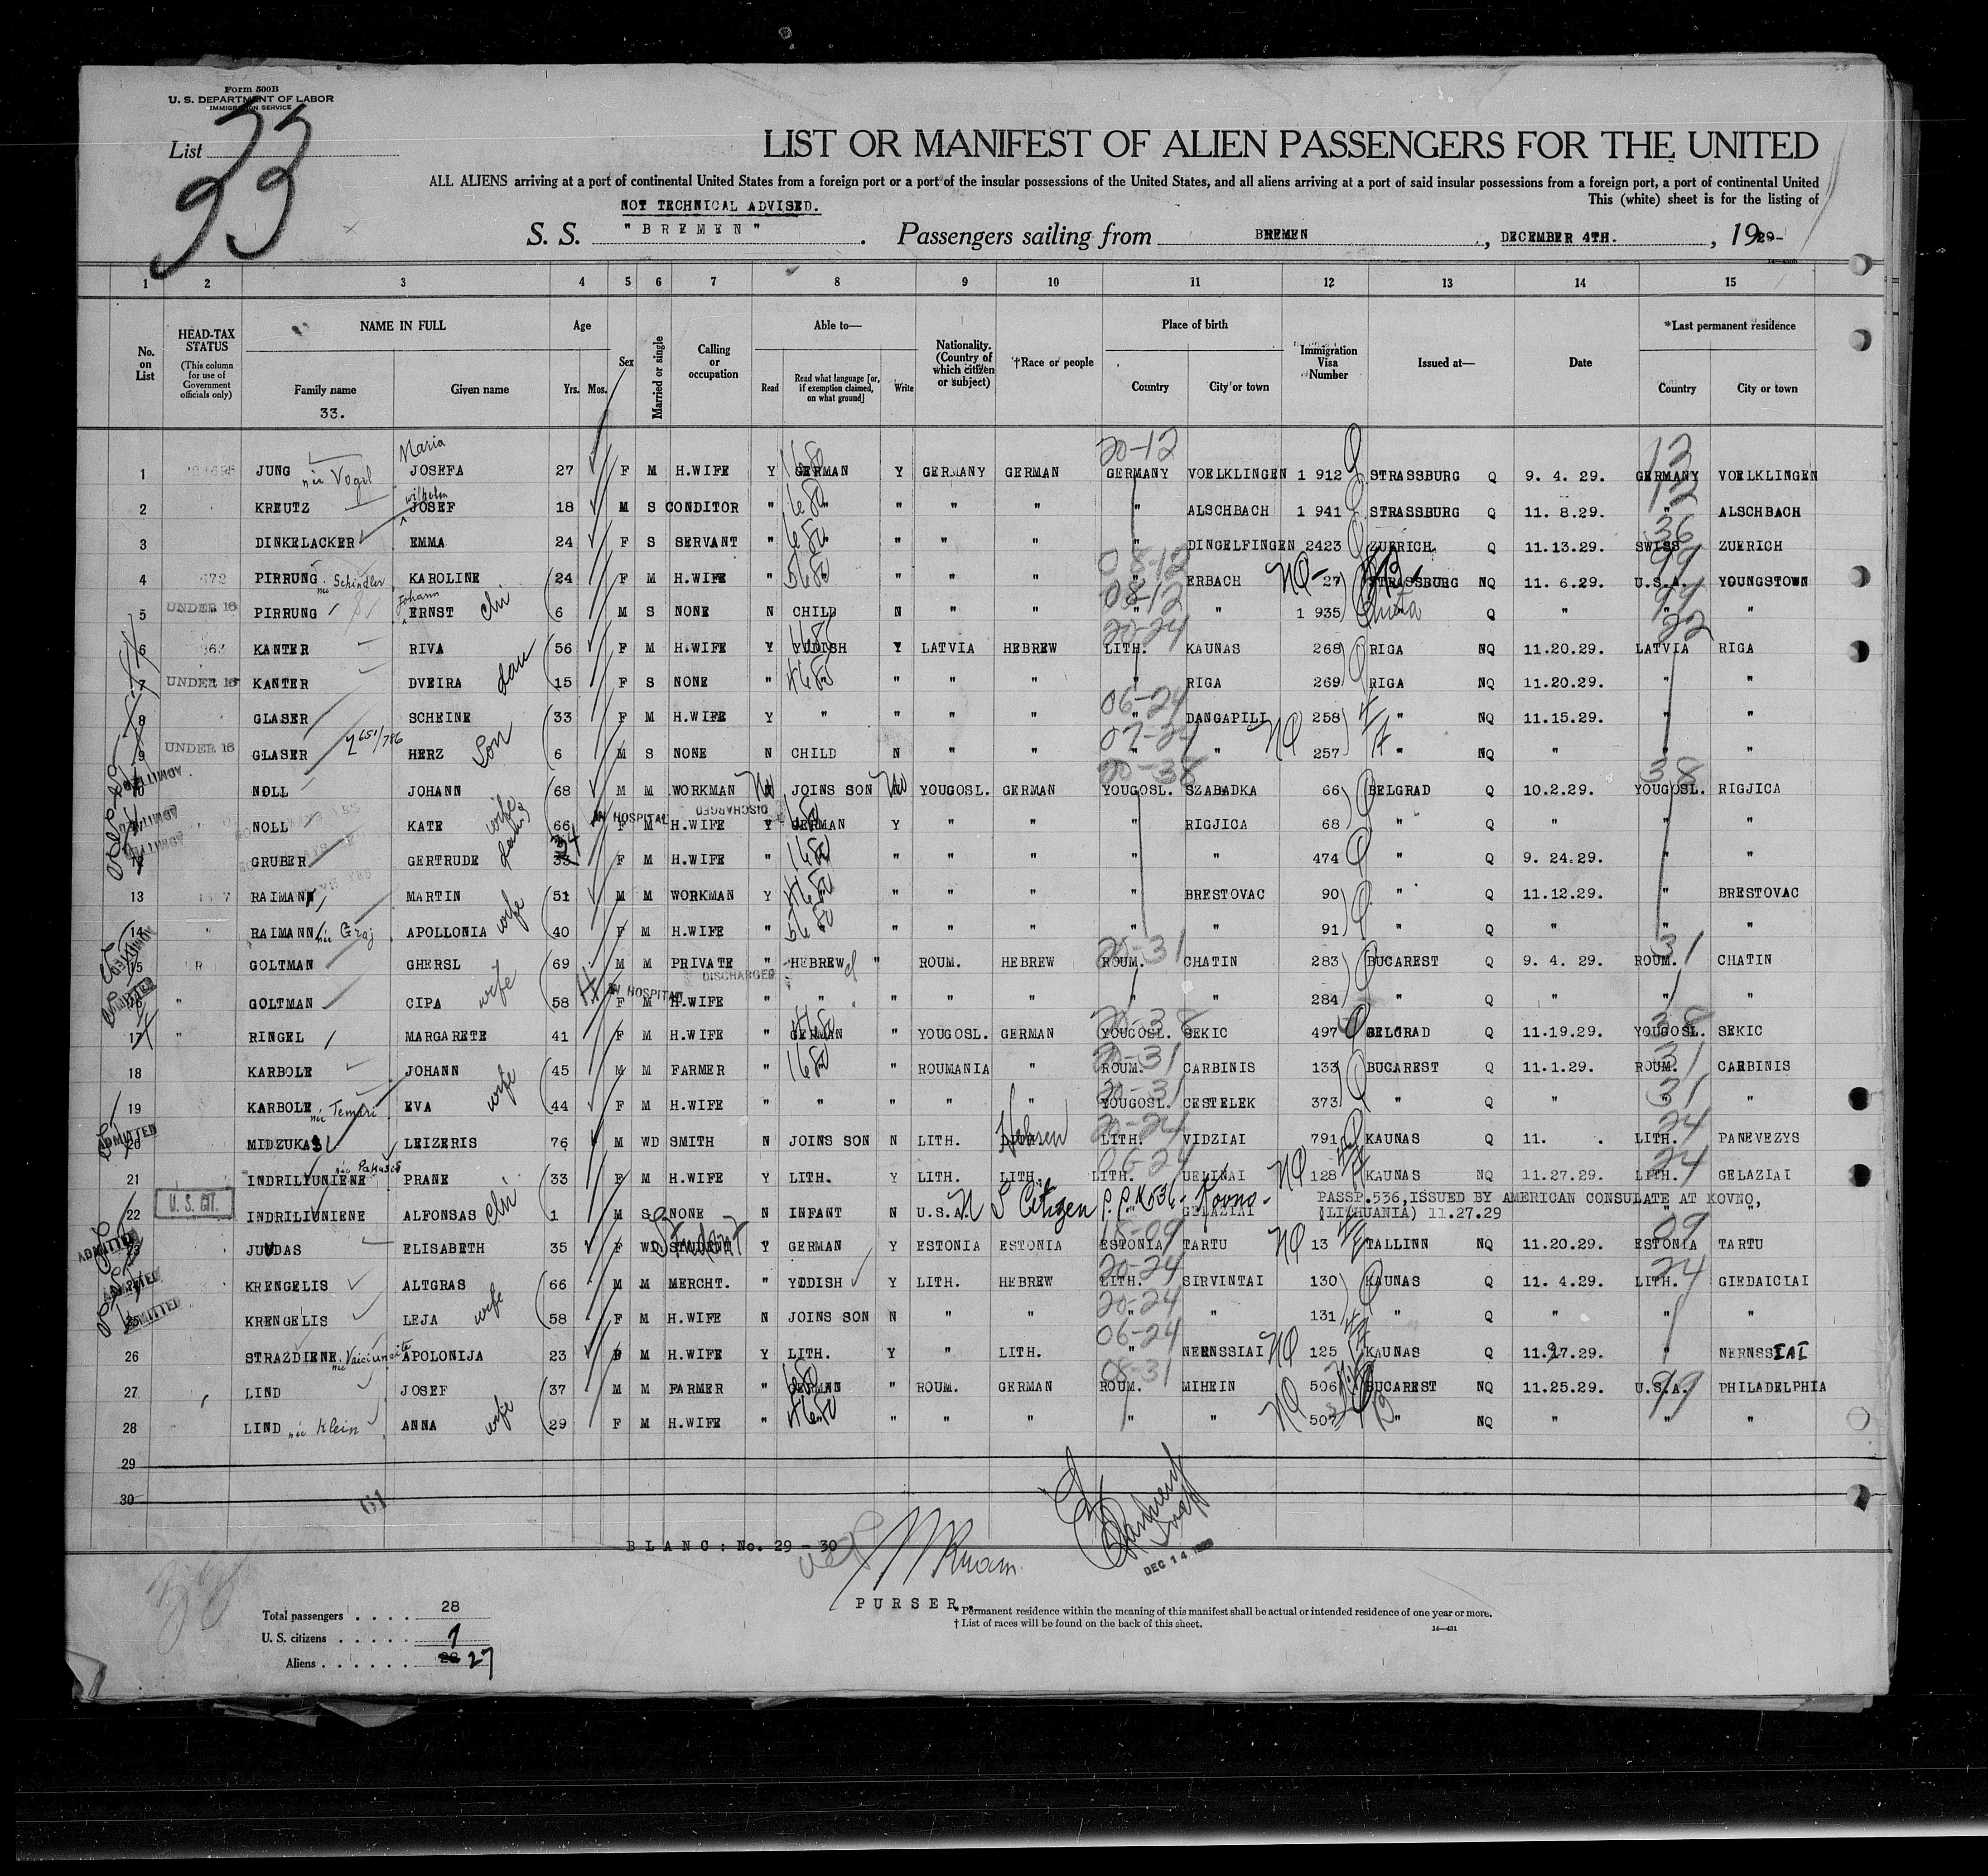 Form 500B
U. S. DEPARTMENT OF LABOR
IMMIGRATION SERVICE
List 33
33
LIST OR MANIFEST OF ALIEN PASSENGERS FOR THE UNITED
ALL ALIENS arriving at a port of continental United States from a foreign port or a port of the insular possessions of the United States, and all aliens arriving at a port of said insular possessions from a foreign port, a port of continental United
This (white) sheet is for the listing of
NOT TECHNICAL ADVISED.
S. S. "BREMEN". Passengers sailing from BREMEN, DECEMBER 4TH., 1929-
1 2 3 4 5 6 7 8 9 10 11 12 13 14 15
No. on List
HEAD-TAX STATUS (This column for use of Government officials only)
NAME IN FULL
Family name
Given name
33.
Age
Yrs. Mos.
Sex
Married or single
Calling or occupation
Able to—
Read
Read what language [or, if exemption claimed, on what ground]
Write
Nationality. (Country of which citizen or subject)
†Race or people
Place of birth
Country
City or town
Immigration Visa Number
Issued at—
Date
*Last permanent residence
Country
City or town
Maria 20-12 12
1 JUNG née Vogel JOSEFA 27 F M H.WIFE Y GERMAN Y GERMANY GERMAN GERMANY VOELKLINGEN 1 912 STRASSBURG Q 9. 4. 29. GERMANY VOELKLINGEN
2 KREUTZ wilhelm JOSEF 18 M S CONDITOR " " " " " " ALSCHBACH 1 941 STRASSBURG Q 11. 8.29. " ALSCHBACH
3 DINKELACKER EMMA 24 F S SERVANT " " " " " " DINGELFINGEN 2423 ZUERICH Q 11.13.29. SWISS ZUERICH
4 PIRRUNG née Schindler KAROLINE 24 F M H.WIFE " " " " " " ERBACH NQ- 27 STRASSBURG NQ 11. 6.29. U.S.A. YOUNGSTOWN
5 UNDER 16 PIRRUNG Johann ERNST chi 6 M S NONE N CHILD N " " " " 1 935 Q " " "
6 KANTER RIVA 56 F M H.WIFE Y YIDISH Y LATVIA HEBREW LITH. KAUNAS 268 RIGA NQ 11.20.29. LATVIA RIGA
7 UNDER 16 KANTER DVEIRA dau 15 F S NONE " " " " " RIGA 269 RIGA NQ 11.20.29. " "
8 GLASER SCHEINE 33 F M H.WIFE Y " " " " " DANGAPILI 258 " NQ 11.15.29. " "
9 UNDER 16 GLASER HERZ Son 6 M S NONE N CHILD N " " " " NQ 257 " NQ " " "
10 NOLL JOHANN 68 M M WORKMAN No JOINS SON No YOUGOSL. GERMAN YOUGOSL. SZABADKA 66 BELGRAD Q 10.2.29. YOUGOSL. RIGJICA
IN HOSPITAL DISCHARGED
11 NOLL KATE wife 66 F M H.WIFE Y GERMAN Y " " " RIGJICA 68 " Q " " "
12 GRUBER GERTRUDE 34 F M H.WIFE " " " " " " 474 " Q 9. 24.29. " "
13 RAIMANN MARTIN 51 M M WORKMAN Y " " " " BRESTOVAC 90 " Q 11.12.29. " BRESTOVAC
14 RAIMANN née Graj APOLLONIA wife 40 F M H.WIFE " " " " " " 91 " Q " " "
15 GOLTMAN GHERSL 69 M M PRIVATE " HEBREW " ROUM. HEBREW ROUM. CHATIN 283 BUCAREST Q 9. 4. 29. ROUM. CHATIN
IN HOSPITAL DISCHARGED
16 " GOLTMAN CIPA wife 58 F M H.WIFE " " " " " " " 284 " Q " " "
17 " RINGEL MARGARETE 41 F M H.WIFE " GERMAN " YOUGOSL. GERMAN YOUGOSL. SEKIC 497 BELGRAD Q 11.19.29. YOUGOSL. SEKIC
18 KARBOLE JOHANN 45 M M FARMER " " ROUMANIA " ROUM. CARBINIS 133 BUCAREST Q 11.1.29. ROUM. CARBINIS
19 KARBOLE née Temari EVA wife 44 F M H.WIFE " " " " " YOUGOSL. CESTELEK 373 " Q " " "
20 ADMITTED MIDZUKAS LEIZERIS 76 M WD SMITH N JOINS SON N LITH. LITH. VIDZIAI 791 KAUNAS Q 11. . LITH. PANEVEZYS
21 INDRILIUNIENE PRANE 33 F M H.WIFE Y LITH. Y LITH. LITH. LITH. UELINAI NQ 128 KAUNAS NQ 11.27.29. LITH. GELAZIAI
22 U. S. CIT. INDRILIUNIENE ALFONSAS chi 1 M S NONE N INFANT N U.S. U S Citizen P.P. # 536 - Kovno - GELAZIAI PASSP.536, ISSUED BY AMERICAN CONSULATE AT KOVNO, (LITHUANIA) 11.27.29
23 ADMITTED JUUDAS ELISABETH 35 F WD Student Y GERMAN Y ESTONIA ESTONIA ESTONIA TARTU NQ 13 TALLINN NQ 11.20.29. ESTONIA TARTU
24 ADMITTED KRENGELIS ALTGRAS 66 M M MERCHT. " YDDISH Y LITH. HEBREW LITH. SIRVINTAI 130 KAUNAS Q 11. 4.29. LITH. GIEDAICIAI
25 ADMITTED KRENGELIS LEJA wife 58 F M H.WIFE N JOINS SON N " " " " 131 " Q " " "
26 STRAZDIENE née Vaiciunaite APOLONIJA 23 F M H.WIFE Y LITH. Y " LITH. " NERNSSIAI NQ 125 KAUNAS Q 11.27.29. " NERNSSIAI
27 LIND JOSEF 37 M M FARMER " GERMAN " ROUM. GERMAN ROUM. MIHEIN NQ 506 BUCAREST NQ 11.25.29. U.S.A. PHILADELPHIA
28 LIND née Klein ANNA wife 29 F M H.WIFE " " " " " " NQ 507 " NQ " " "
29
30
61
BLANC: No. 29 - 30
DEC 14 1929
PURSER.
Total passengers . . . . 28
U. S. citizens . . . . . 1
Aliens . . . . . . 28 27
* Permanent residence within the meaning of this manifest shall be actual or intended residence of one year or more.
† List of races will be found on the back of this sheet.
14—431